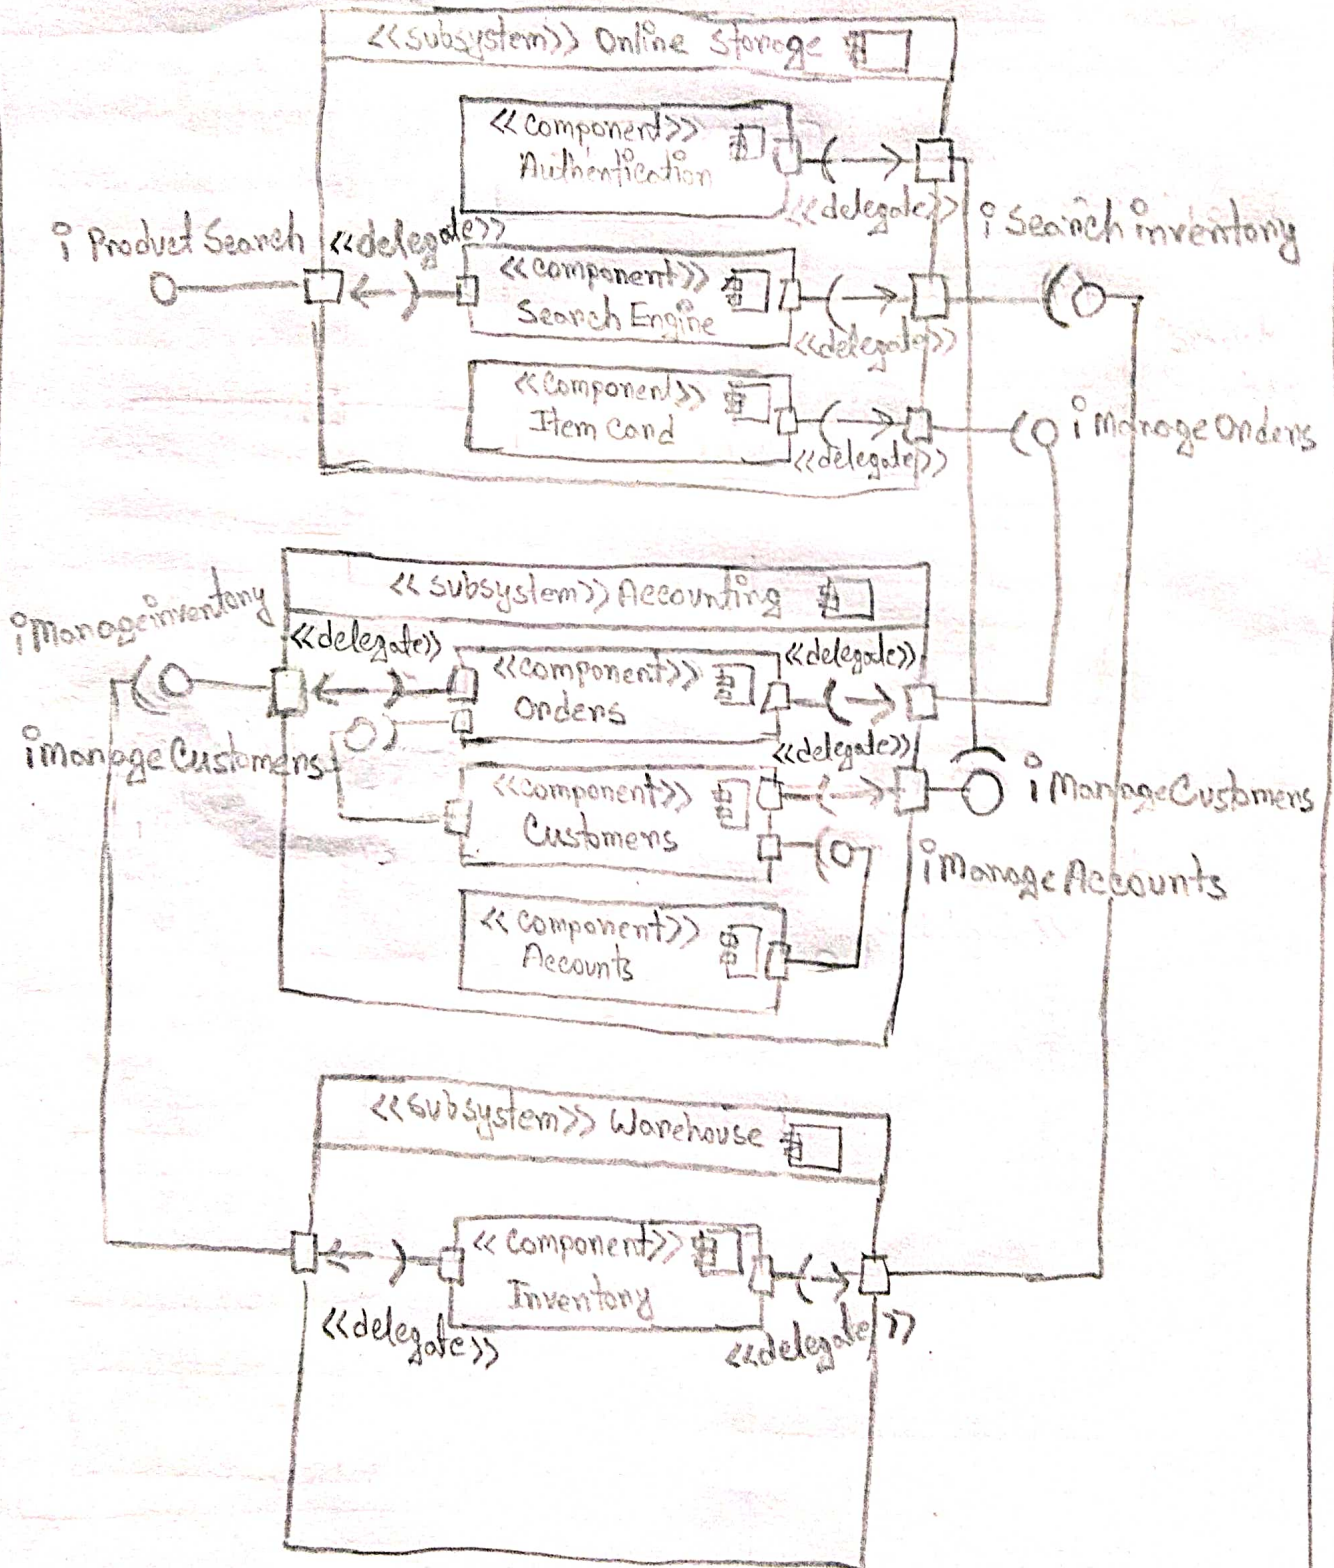 <<subsystem>> Online Storage
<<component>>
Authentication
<<delegate>>
i Product Search
<<delegate>>
i Search inventory
<<component>>
Search Engine
<<delegate>>
<<component>>
Item Cand
<<delegate>>
i Manage Orders
<<subsystem>> Accounting
i Manage inventory
<<delegate>>
<<delegate>>
<<component>>
Orders
i Manage Customers
<<delegate>>
<<component>>
Customers
i Manage Customers
i Manage Accounts
<<component>>
Accounts
<<subsystem>> Warehouse
<<component>>
Inventory
<<delegate>>
<<delegate>>